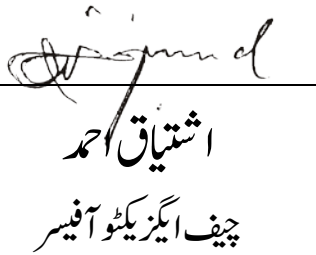 اشتیاق احمد
چیف ایگزیکٹو آفیسر